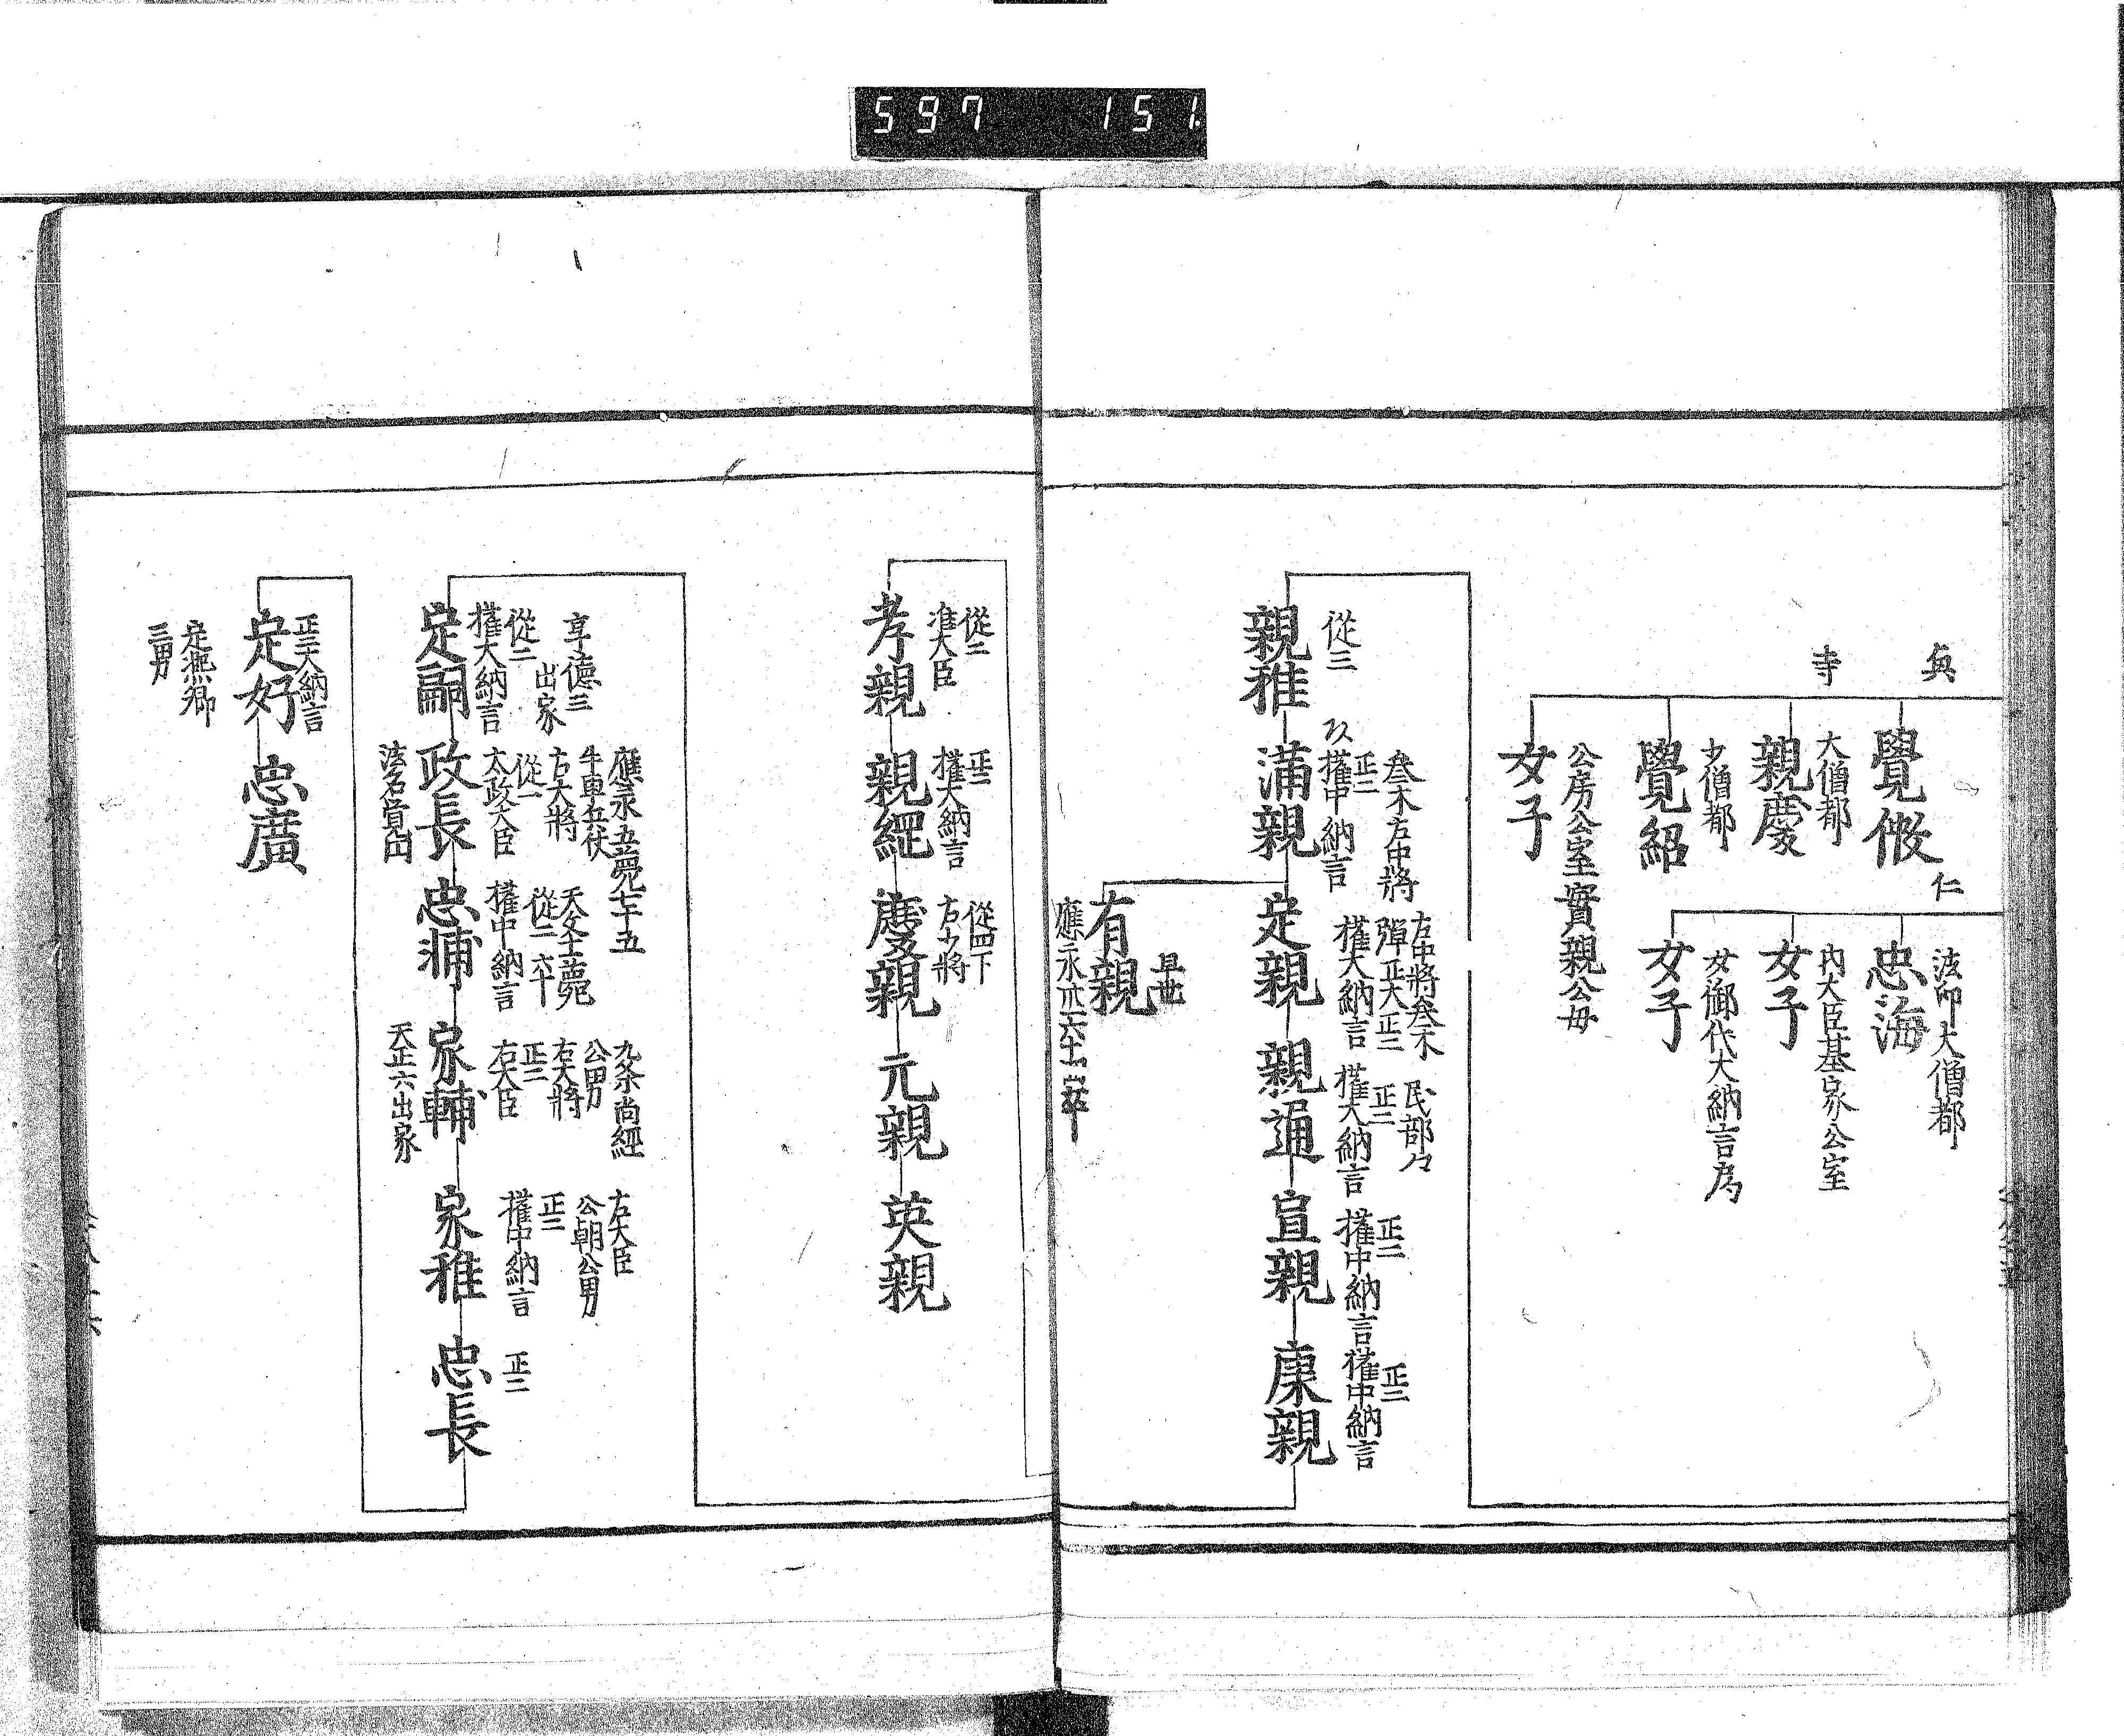 597 151
覺
大僧都
親慶
寺
少僧都
覺紹
公房公室實親公母
女子
仁
法印大僧都
忠海
内大臣基家公室
女子
女御代大納言為
女子
從三
親雅
叁木右中將
正二
權中納言
滿親
右中將叁木
彈正大正二
權大納言
定親
早世
有親
民部々
正二
權大納言
親通
正二
權中納言
宣親
正二
權中納言
康親
從二
准大臣
孝親
正二
權大納言
親經
從四下
右少將
慶親
元親
英親
享德三
出家
從二
權大納言
定嗣
應永五薨七十五
牛車兵仗
右大將
從一
太政大臣
政長
天文十薨
從二 六十
權中納言
忠輔
九条尚經
公男
右大將
正二
右大臣
家輔
天正六出家
右大臣
公朝公男
正二
權中納言
家雅
正二
忠長
正三大納言
定好
定凞卿
三男
忠廣